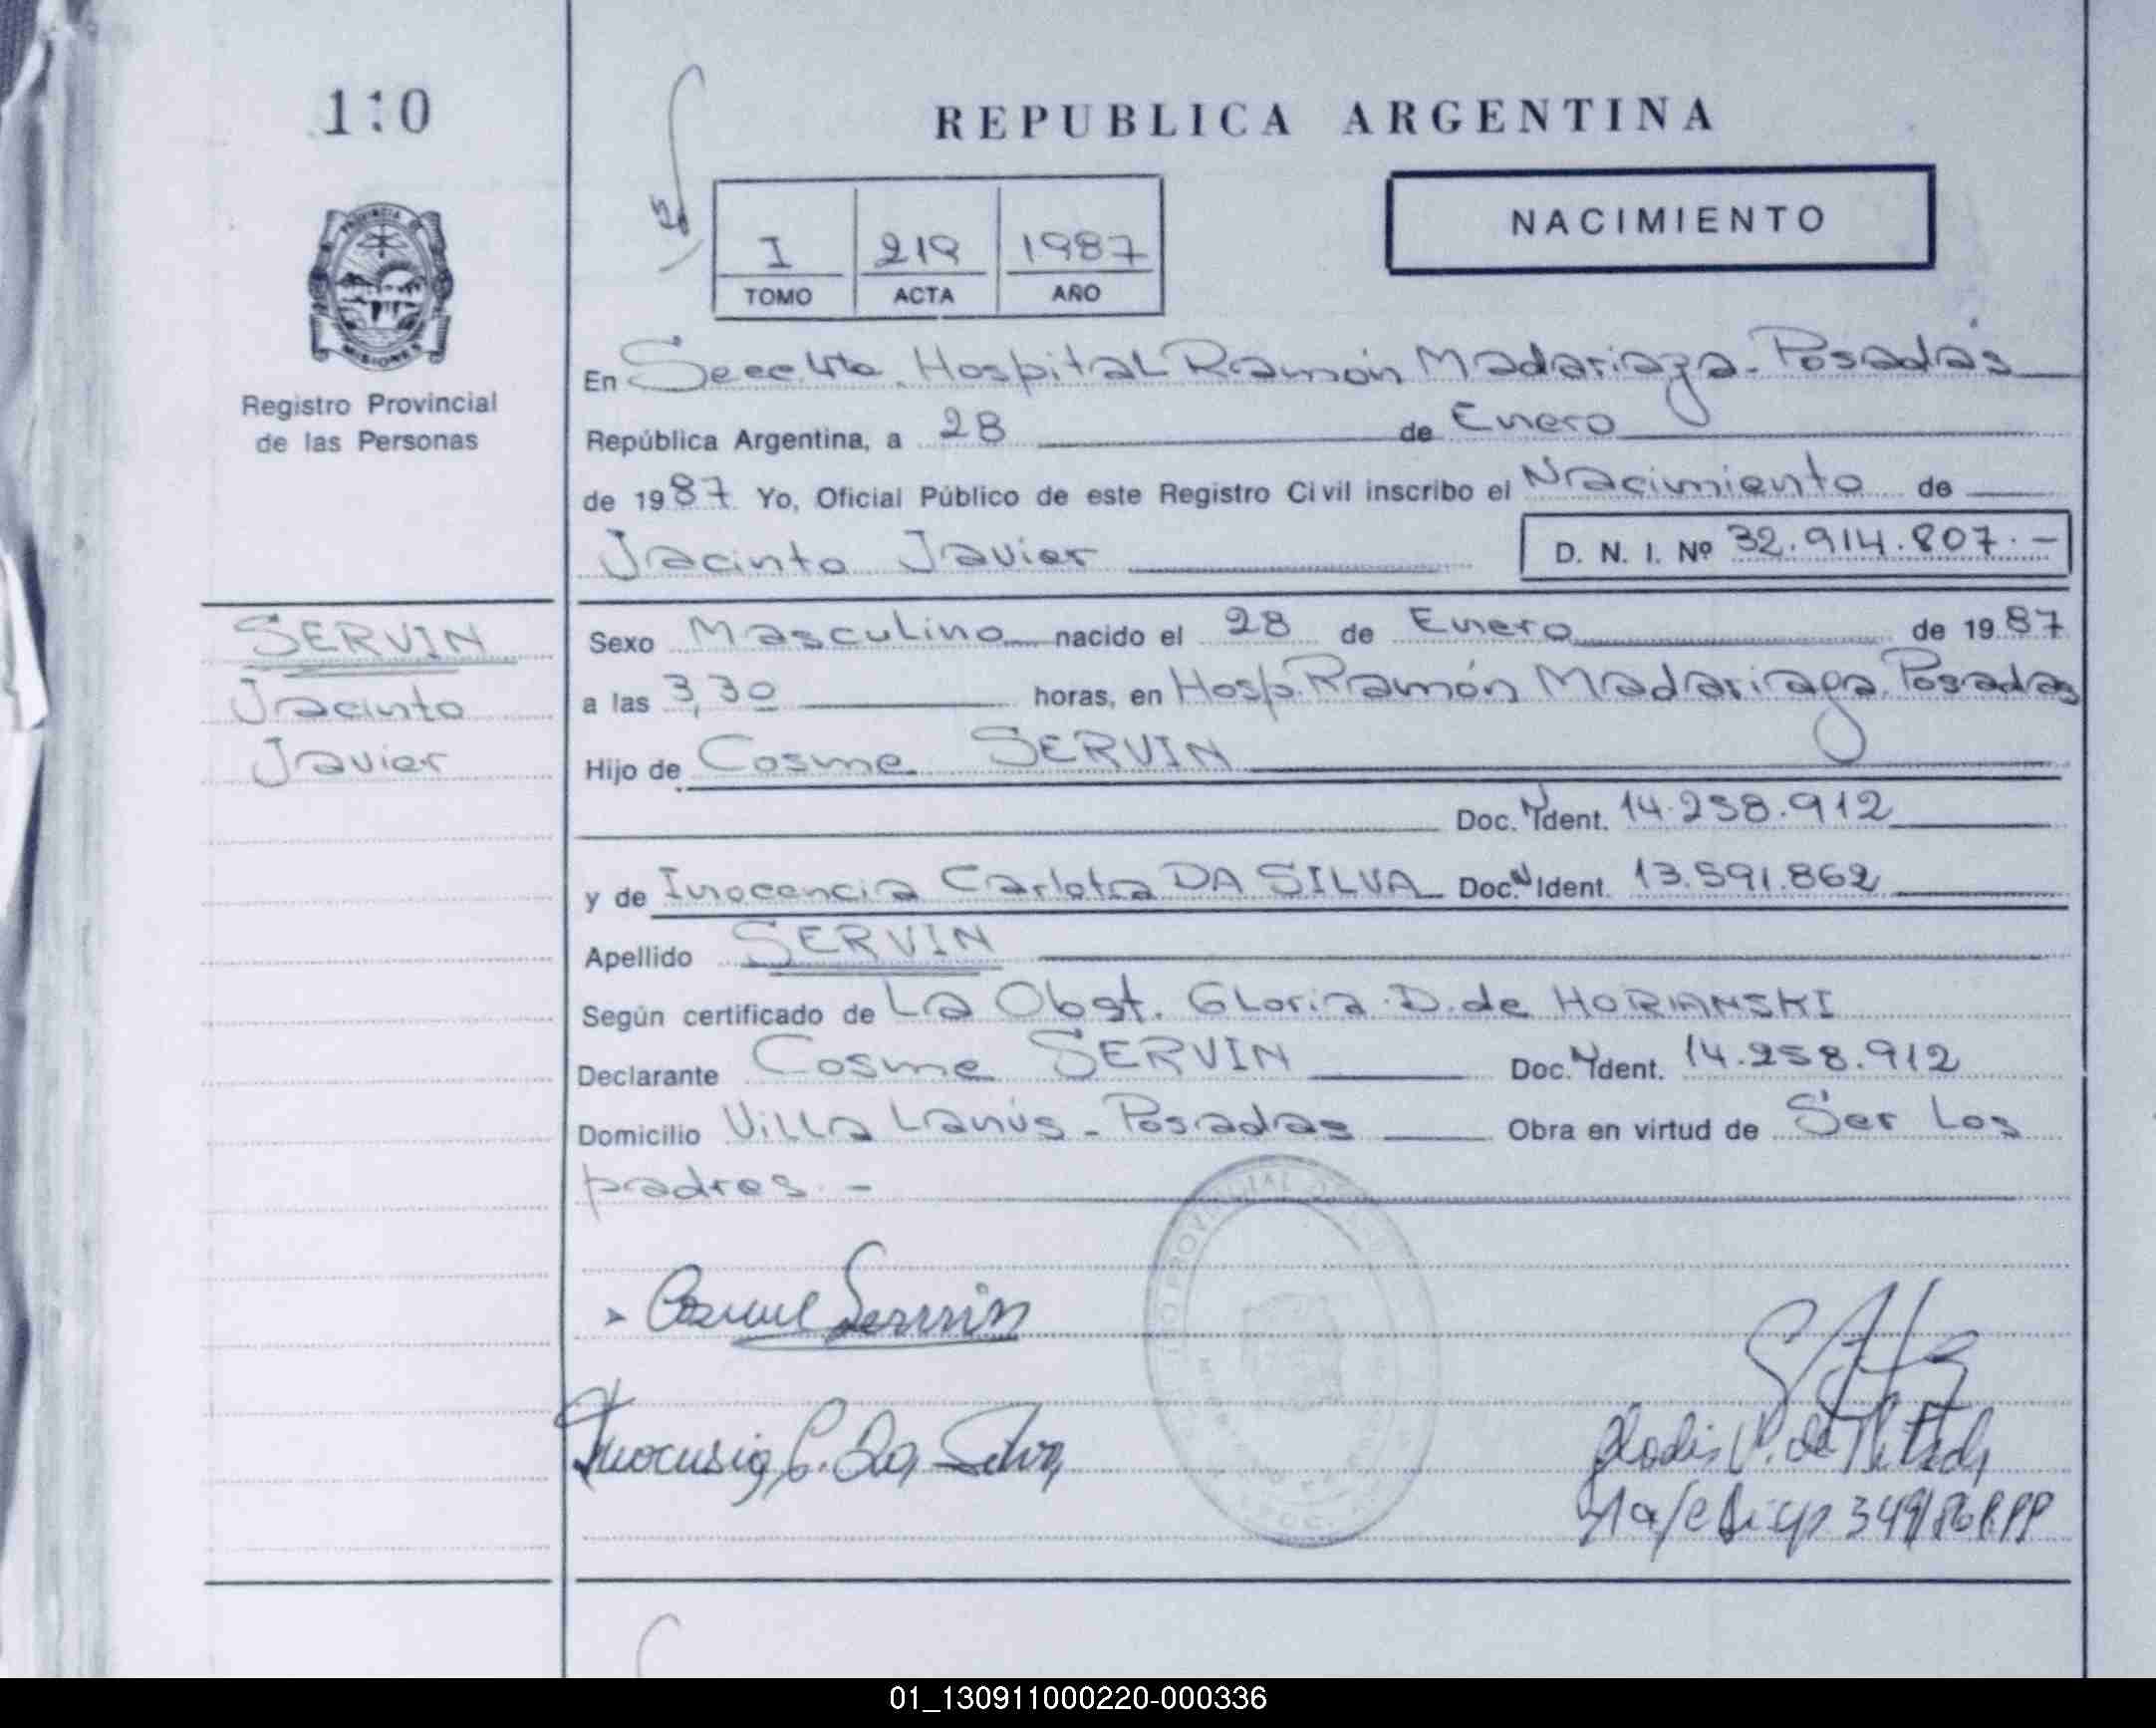 110
REPUBLICA ARGENTINA
NACIMIENTO
I 219 1987
TOMO ACTA AÑO
PROVINCIA
MISIONES
Registro Provincial
de las Personas
En Secc. 4ta. Hospital Ramón Madariaga - Posadas
República Argentina, a 28 de Enero
de 1987 Yo, Oficial Público de este Registro Civil inscribo el Nacimiento de
Jacinto Javier D. N. I. Nº 32.914.807.-
SERVIN
Jacinto
Javier
Sexo Masculino nacido el 28 de Enero de 1987
a las 3,30 horas, en Hosp. Ramón Madariaga. Posadas
Hijo de Cosme SERVIN
Doc. N Ident. 14.258.912
y de Inocencia Carlota DA SILVA Doc. N Ident. 13.591.862
Apellido SERVIN
Según certificado de La Obst. Gloria D. de HORIANSKI
Declarante Cosme SERVIN Doc. N Ident. 14.258.912
Domicilio Villa Lanús - Posadas Obra en virtud de Ser Los
padres. -
Servin
C. Da Silva
349/86 R.P.P.
01_130911000220-000336